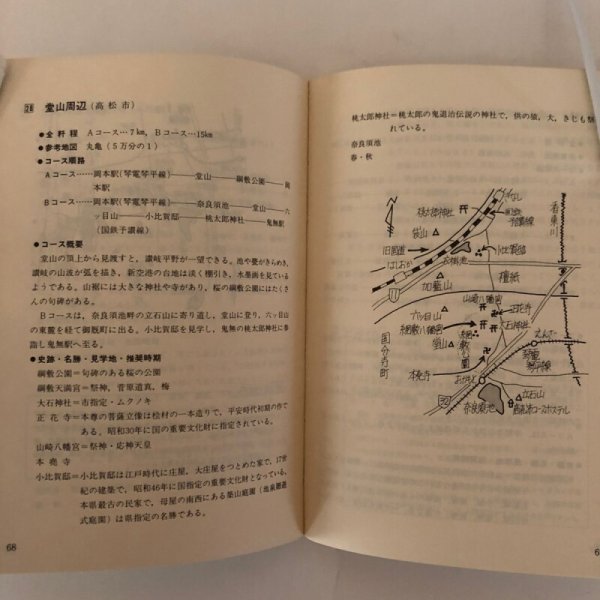 28 堂山周辺（高松市）
●全行程 Aコース…7km，Bコース…15km
●参考地図 丸亀（5万分の1）
●コース順路
Aコース――岡本駅（琴電琴平線）――堂山――綱敷公園――岡
本駅
Bコース――岡本駅（琴電琴平線）――奈良須池――堂山――六
ッ目山――小比賀邸――桃太郎神社――鬼無駅
（国鉄予讃線）
●コース概要
堂山の頂上から見渡すと，讃岐平野が一望できる。池や甍がきらめき，
讃岐の山波が弧を描き，新空港の台地は淡く棚引き，水墨画を見てい
るようである。山裾には大きな神社や寺があり，桜の綱敷公園にはたくさ
んの句碑がある。
Bコースは，奈良須池畔の立石山に寄り道し，堂山に登り，六ッ目山
の東麓を経て御厩町に出る。小比賀邸を見学し，鬼無の桃太郎神社に参
詣し鬼無駅へ至る。
●史跡・名勝・見学地・推奨時期
綱敷公園＝句碑のある桜の公園
綱敷天満宮＝祭神，菅原道真，梅
大石神社＝市指定・ムクノキ
正花寺＝本尊の菩薩立像は桧材の一本造りで，平安時代初期の作で
ある。昭和30年に国の重要文化財に指定されている。
山崎八幡宮＝祭神・応神天皇
本尭寺
小比賀邸＝小比賀邸は江戸時代に庄屋，大庄屋をつとめた家で，17世
紀の建築で，昭和46年に国指定の重要文化財となっている。
本県最古の民家で，母屋の南西にある築山庭園（池泉廻遊
式庭園）は県指定の名勝である。
68
桃太郎神社＝桃太郎の鬼退治伝説の神社で，供の猿，犬，きじも祭
れている。
奈良須池
春・秋
きなし
桃太郎神社
国鉄
予讃線
香東川
袋山
旧国道
はしおか
小比賀邸
加藍山
檀紙
11
山崎八幡宮
正花寺
六ッ目山
綱敷八幡宮
大石神社
堂山
綱敷公園
国分寺町
本尭寺
おかもと
えんざ
琴電
琴平線
32
立石山
奈良須池
6